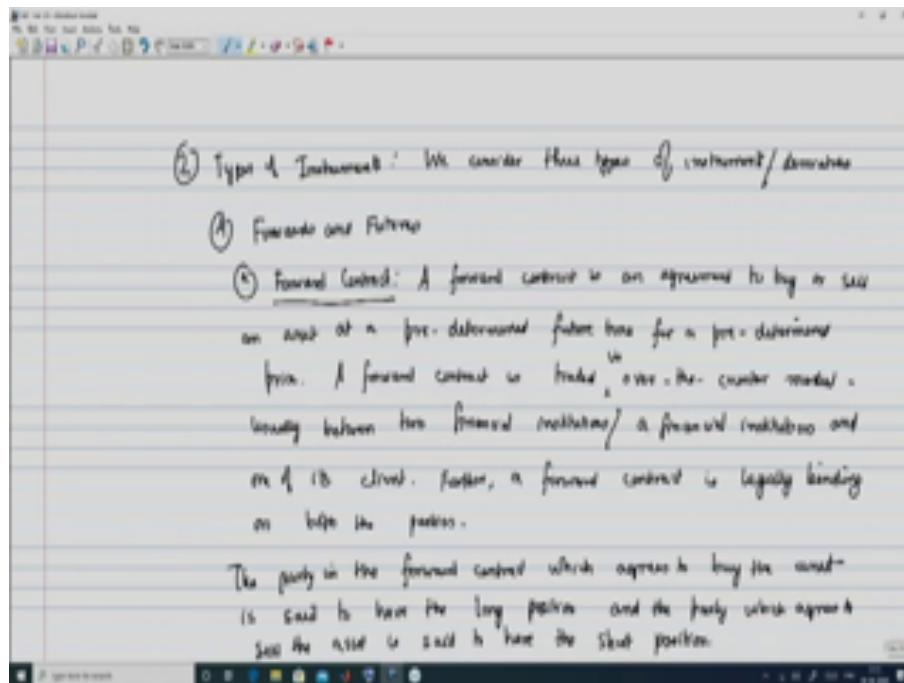 ② Types of Instruments: We consider three types of instrument/ derivatives
Ⓐ Forwards and Futures
ⓐ Forward Contract: A forward contract is an agreement to buy or sell
an asset at a pre-determined future time for a pre-determined
price. A forward contract is traded in over-the-counter market -
usually between two financial institutions/ a financial institution and
one of its client. Further, a forward contract is legally binding
on both the parties.
The party in the forward contract which agrees to buy the asset
is said to have the long position and the party which agrees to
sell the asset is said to have the short position.